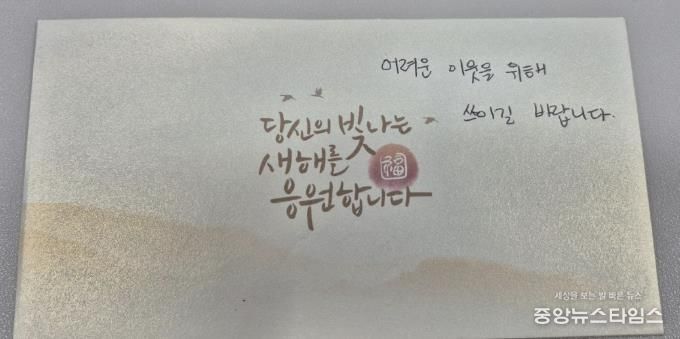 어려운 이웃을 위해
쓰이길 바랍니다.
당신의 빛나는
새해를
福
응원합니다
세상을 보는 발 빠른 뉴스
중앙뉴스타임스